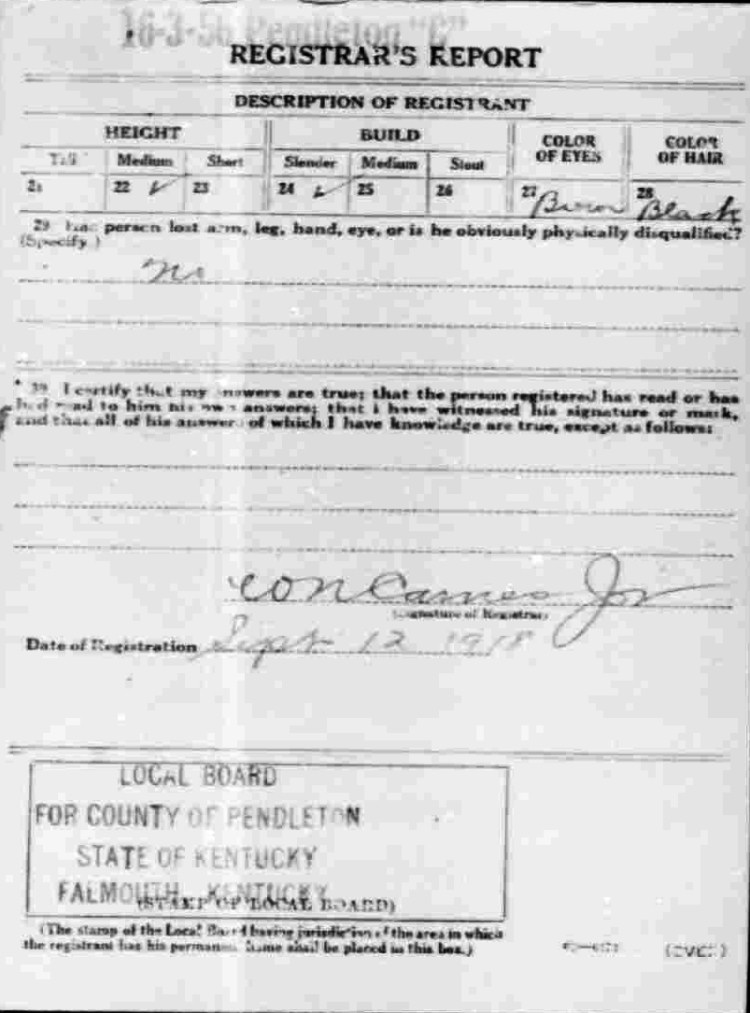 16-3-56 Pendleton "C"
REGISTRAR'S REPORT
DESCRIPTION OF REGISTRANT
HEIGHT BUILD COLOR OF EYES COLOR OF HAIR
Tall Medium Short Slender Medium Stout
21 22 ✓ 23 24 ✓ 25 26 27 Brown 28 Black
29 Has person lost arm, leg, hand, eye, or is he obviously physically disqualified?
(Specify.)
no
30 I certify that my answers are true; that the person registered has read or has
had read to him his own answers; that I have witnessed his signature or mark,
and that all of his answers of which I have knowledge are true, except as follows:
Carnes Jr
(Signature of Registrar)
Date of Registration Sept 12 1918
LOCAL BOARD
FOR COUNTY OF PENDLETON
STATE OF KENTUCKY
FALMOUTH, KENTUCKY
(STAMP OF LOCAL BOARD)
(The stamp of the Local Board having jurisdiction of the area in which
the registrant has his permanent home shall be placed in this box.)
(OVER)